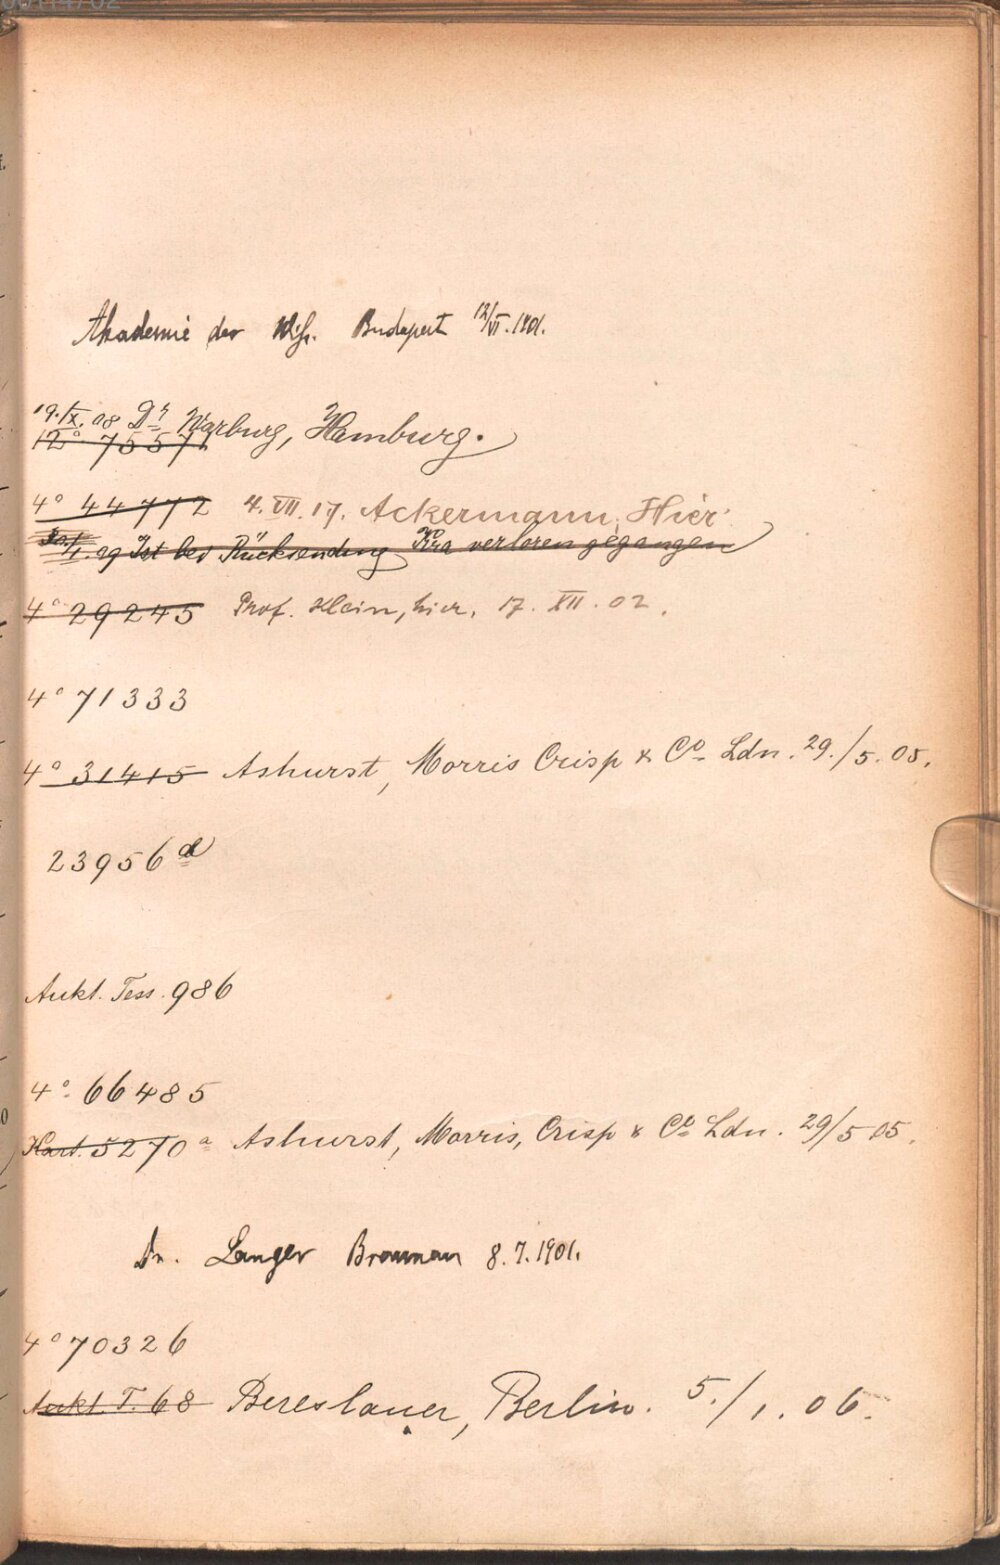 Akademie der Wiss. Budapest 12/VI.1901.
19.IX.08 Dr Warburg, Hamburg.
12° 7557
4° 44772 4.VII.17. Ackermann, Hier
1.09 Ist bei Rücksendung verloren gegangen
4° 29245 Prof. Klein, hier, 17. XII. 02.
4° 71333
4° 31415 Ashurst, Morris Crisp & Co Ldn. 29./5.05.
23956 d
Aukt. Tess. 986
4° 66485
Kart. 5270 a Ashurst, Morris, Crisp & Co Ldn. 29/5 05.
Dr. Langer Braunau 8.7.1901.
4° 70326
Aukt T. 68 Bereslauer, Berlin. 5./1.06.